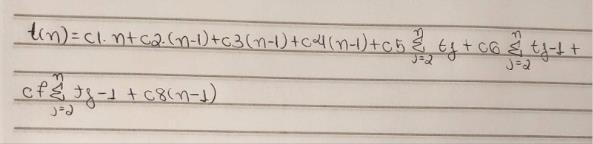 t(n)=c1.n+c2.(n-1)+c3(n-1)+c4(n-1)+c5 n∑j=2 tj + c6 n∑j=2 tj-1+
c7 n∑j=2 tj-1 + c8(n-1)